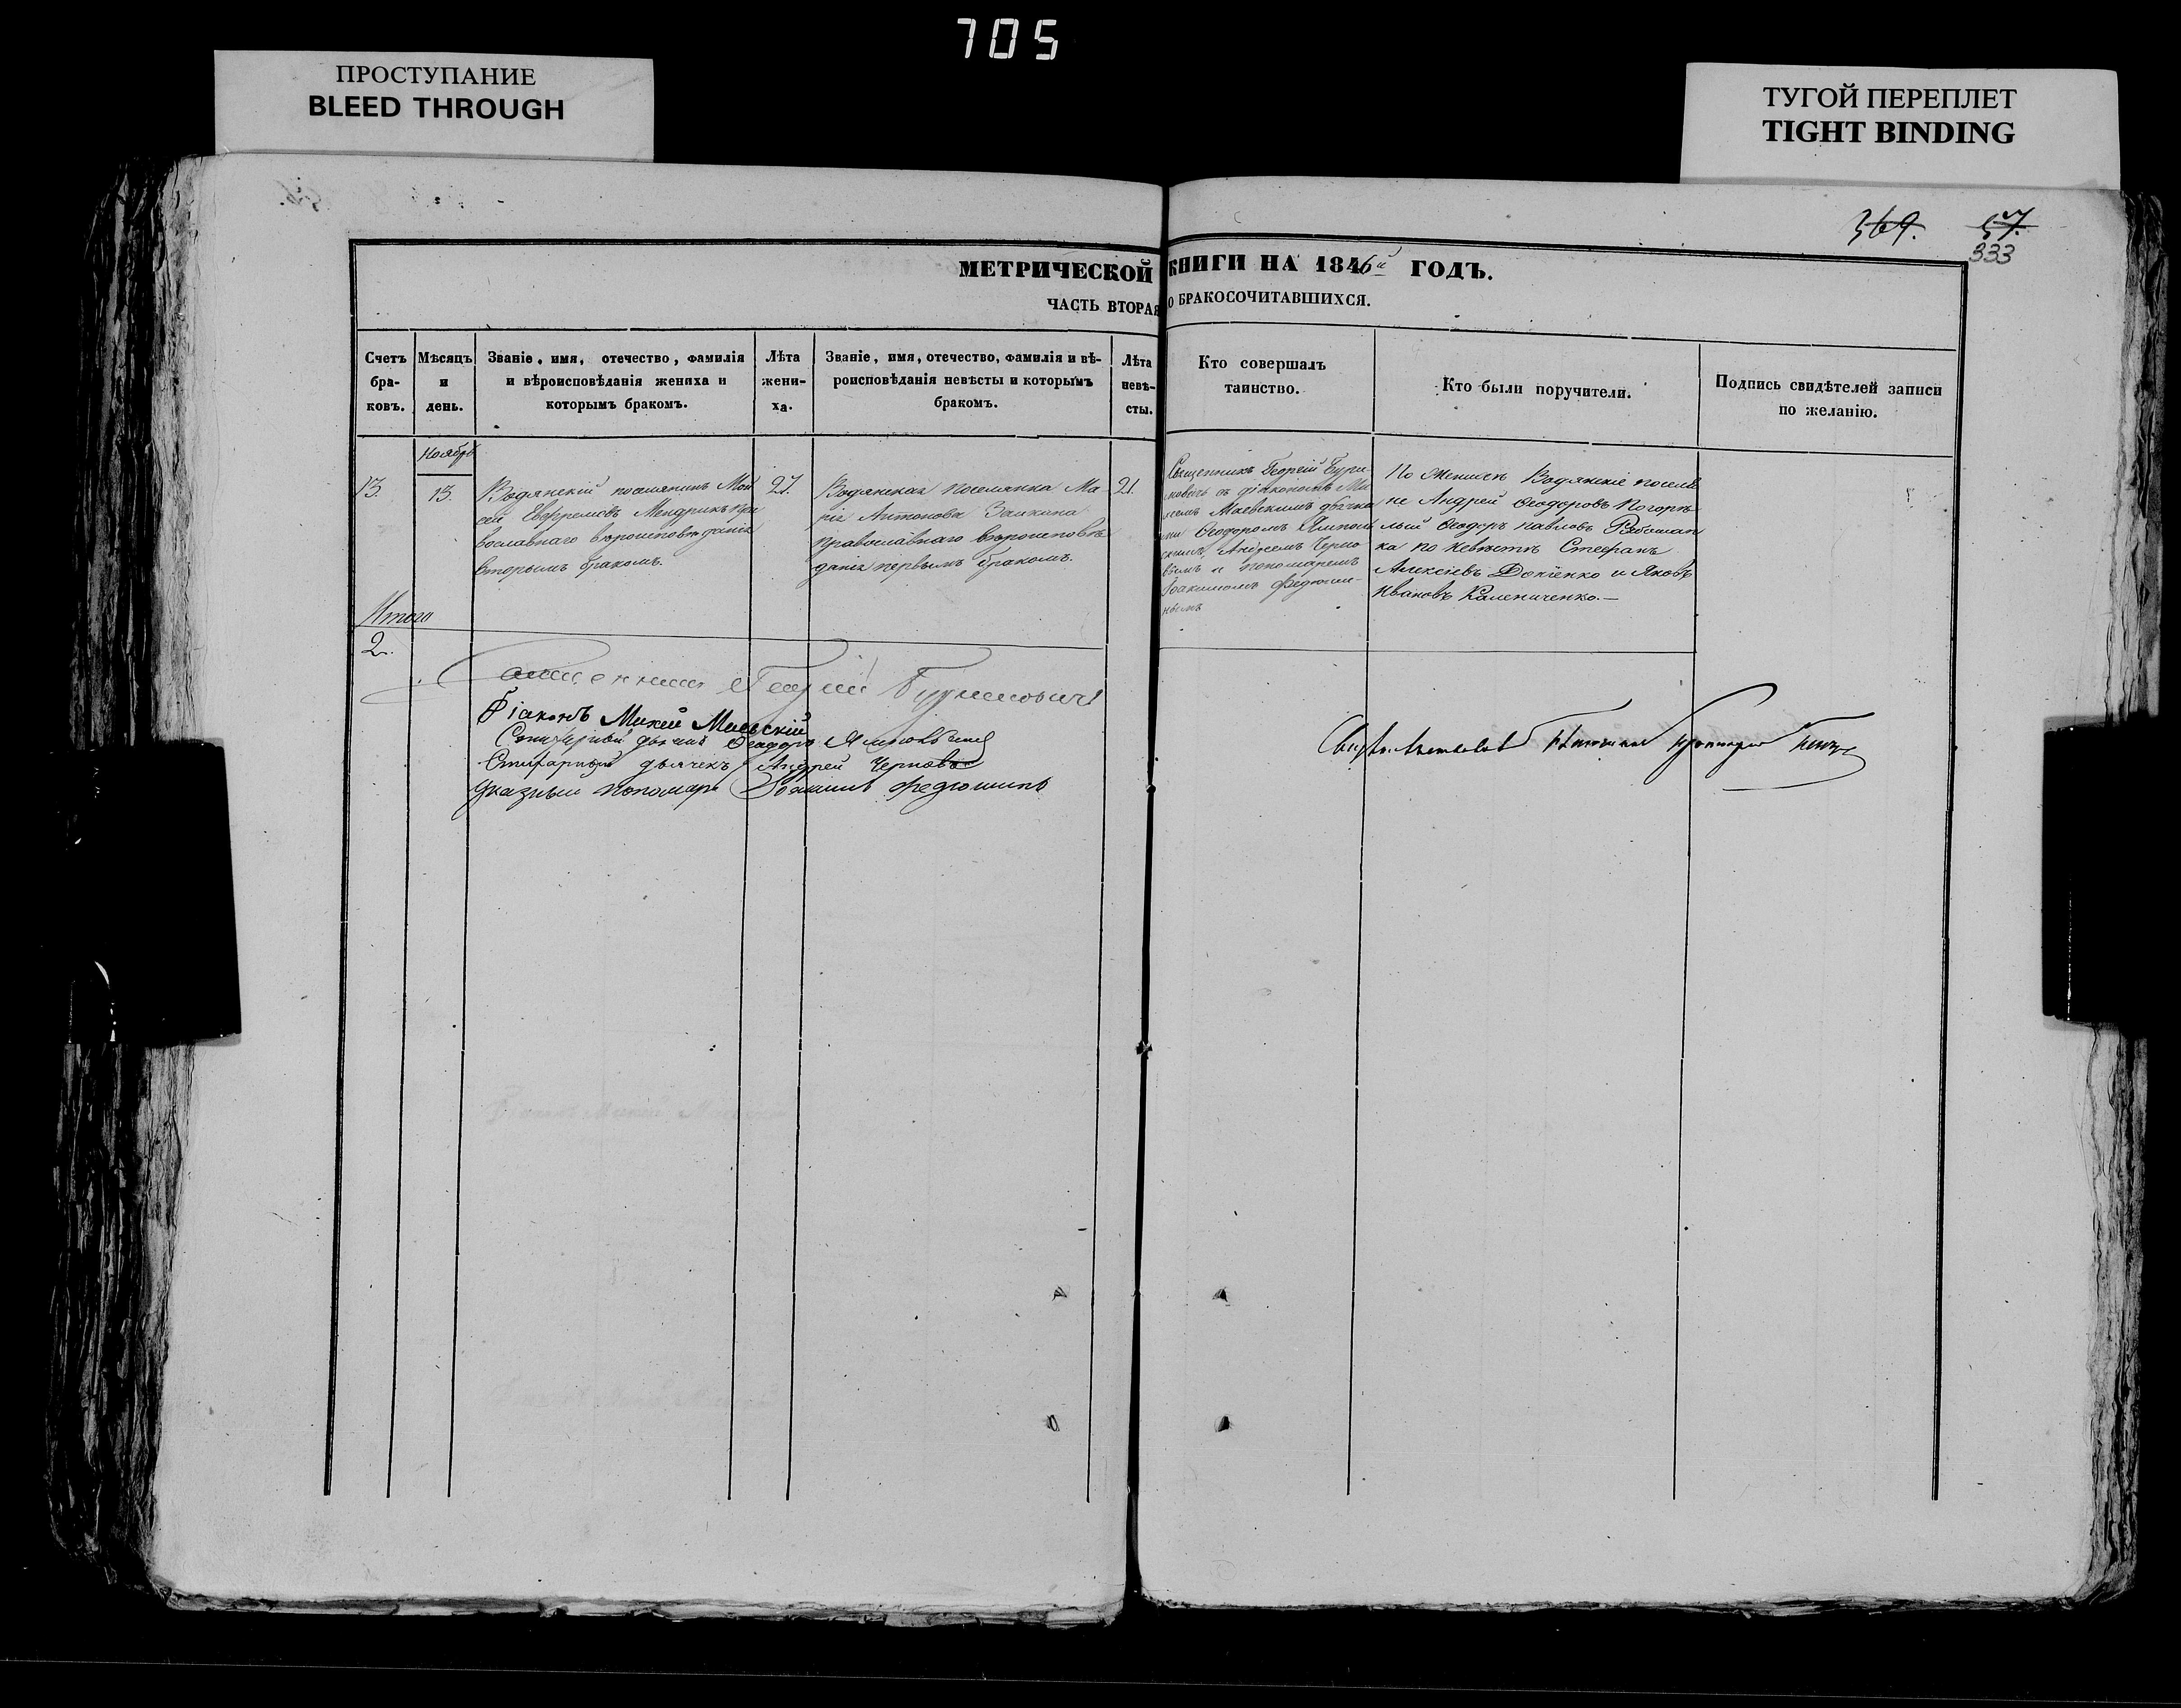 705
ПРОСТУПАНИЕ
BLEED THROUGH
ТУГОЙ ПЕРЕПЛЕТ
TIGHT BINDING
369. 57.
333
МЕТРИЧЕСКОЙ КНИГИ НА 1846й ГОДЪ.
ЧАСТЬ ВТОРАЯ О БРАКОСОЧИТАВШИХСЯ.
Счетъ
бра-
ковъ.
Мѣсяцъ
и
день.
Званіе, имя, отечество, фамилія
и вѣроисповѣданія жениха и
которымъ бракомъ.
Лѣта
жени-
ха.
Званіе, имя, отечество, фамилія и вѣ-
роисповѣданія невѣсты и которымъ
бракомъ.
Лѣта
невѣ-
сты.
Кто совершалъ
таинство.
Кто были поручители.
Подпись свидѣтелей записи
по желанію.
Ноябрь
13.
13
Водянскій поселянинъ Мои
сей Евфремовъ Мендрикъ пра
вославнаго вѣроисповѣданія
вторымъ бракомъ.
27.
Водянская поселянка Ма
рія Антонова Заикина
православнаго вѣроисповѣ
данія первымъ бракомъ.
21.
Священникъ Георгій Бури
мовичь съ діакономъ Ми
хеемъ Маевскимъ дьячка
ми Ѳеодоромъ Ямполь
скимъ, Андреемъ Черно
вымъ и пономаремъ
Іоакимомъ Федюши-
нымъ
По женихѣ Водянскіе поселя
не Андрей Ѳеодоровъ Погорѣ
лый Ѳеодоръ Павловъ
ка по невѣстѣ Стефанъ
Алексѣевъ и Яковъ
Ивановъ Калениченко.—
Итого
2.
Священникъ Георгій Буримовичъ
Діаконъ Михей Маевскій
Стихарный дьячекъ Ѳеодоръ Ямпольскій
Стихарный дьячекъ Андрей Черновъ
Указный пономарь Іоакимъ Федюшинъ